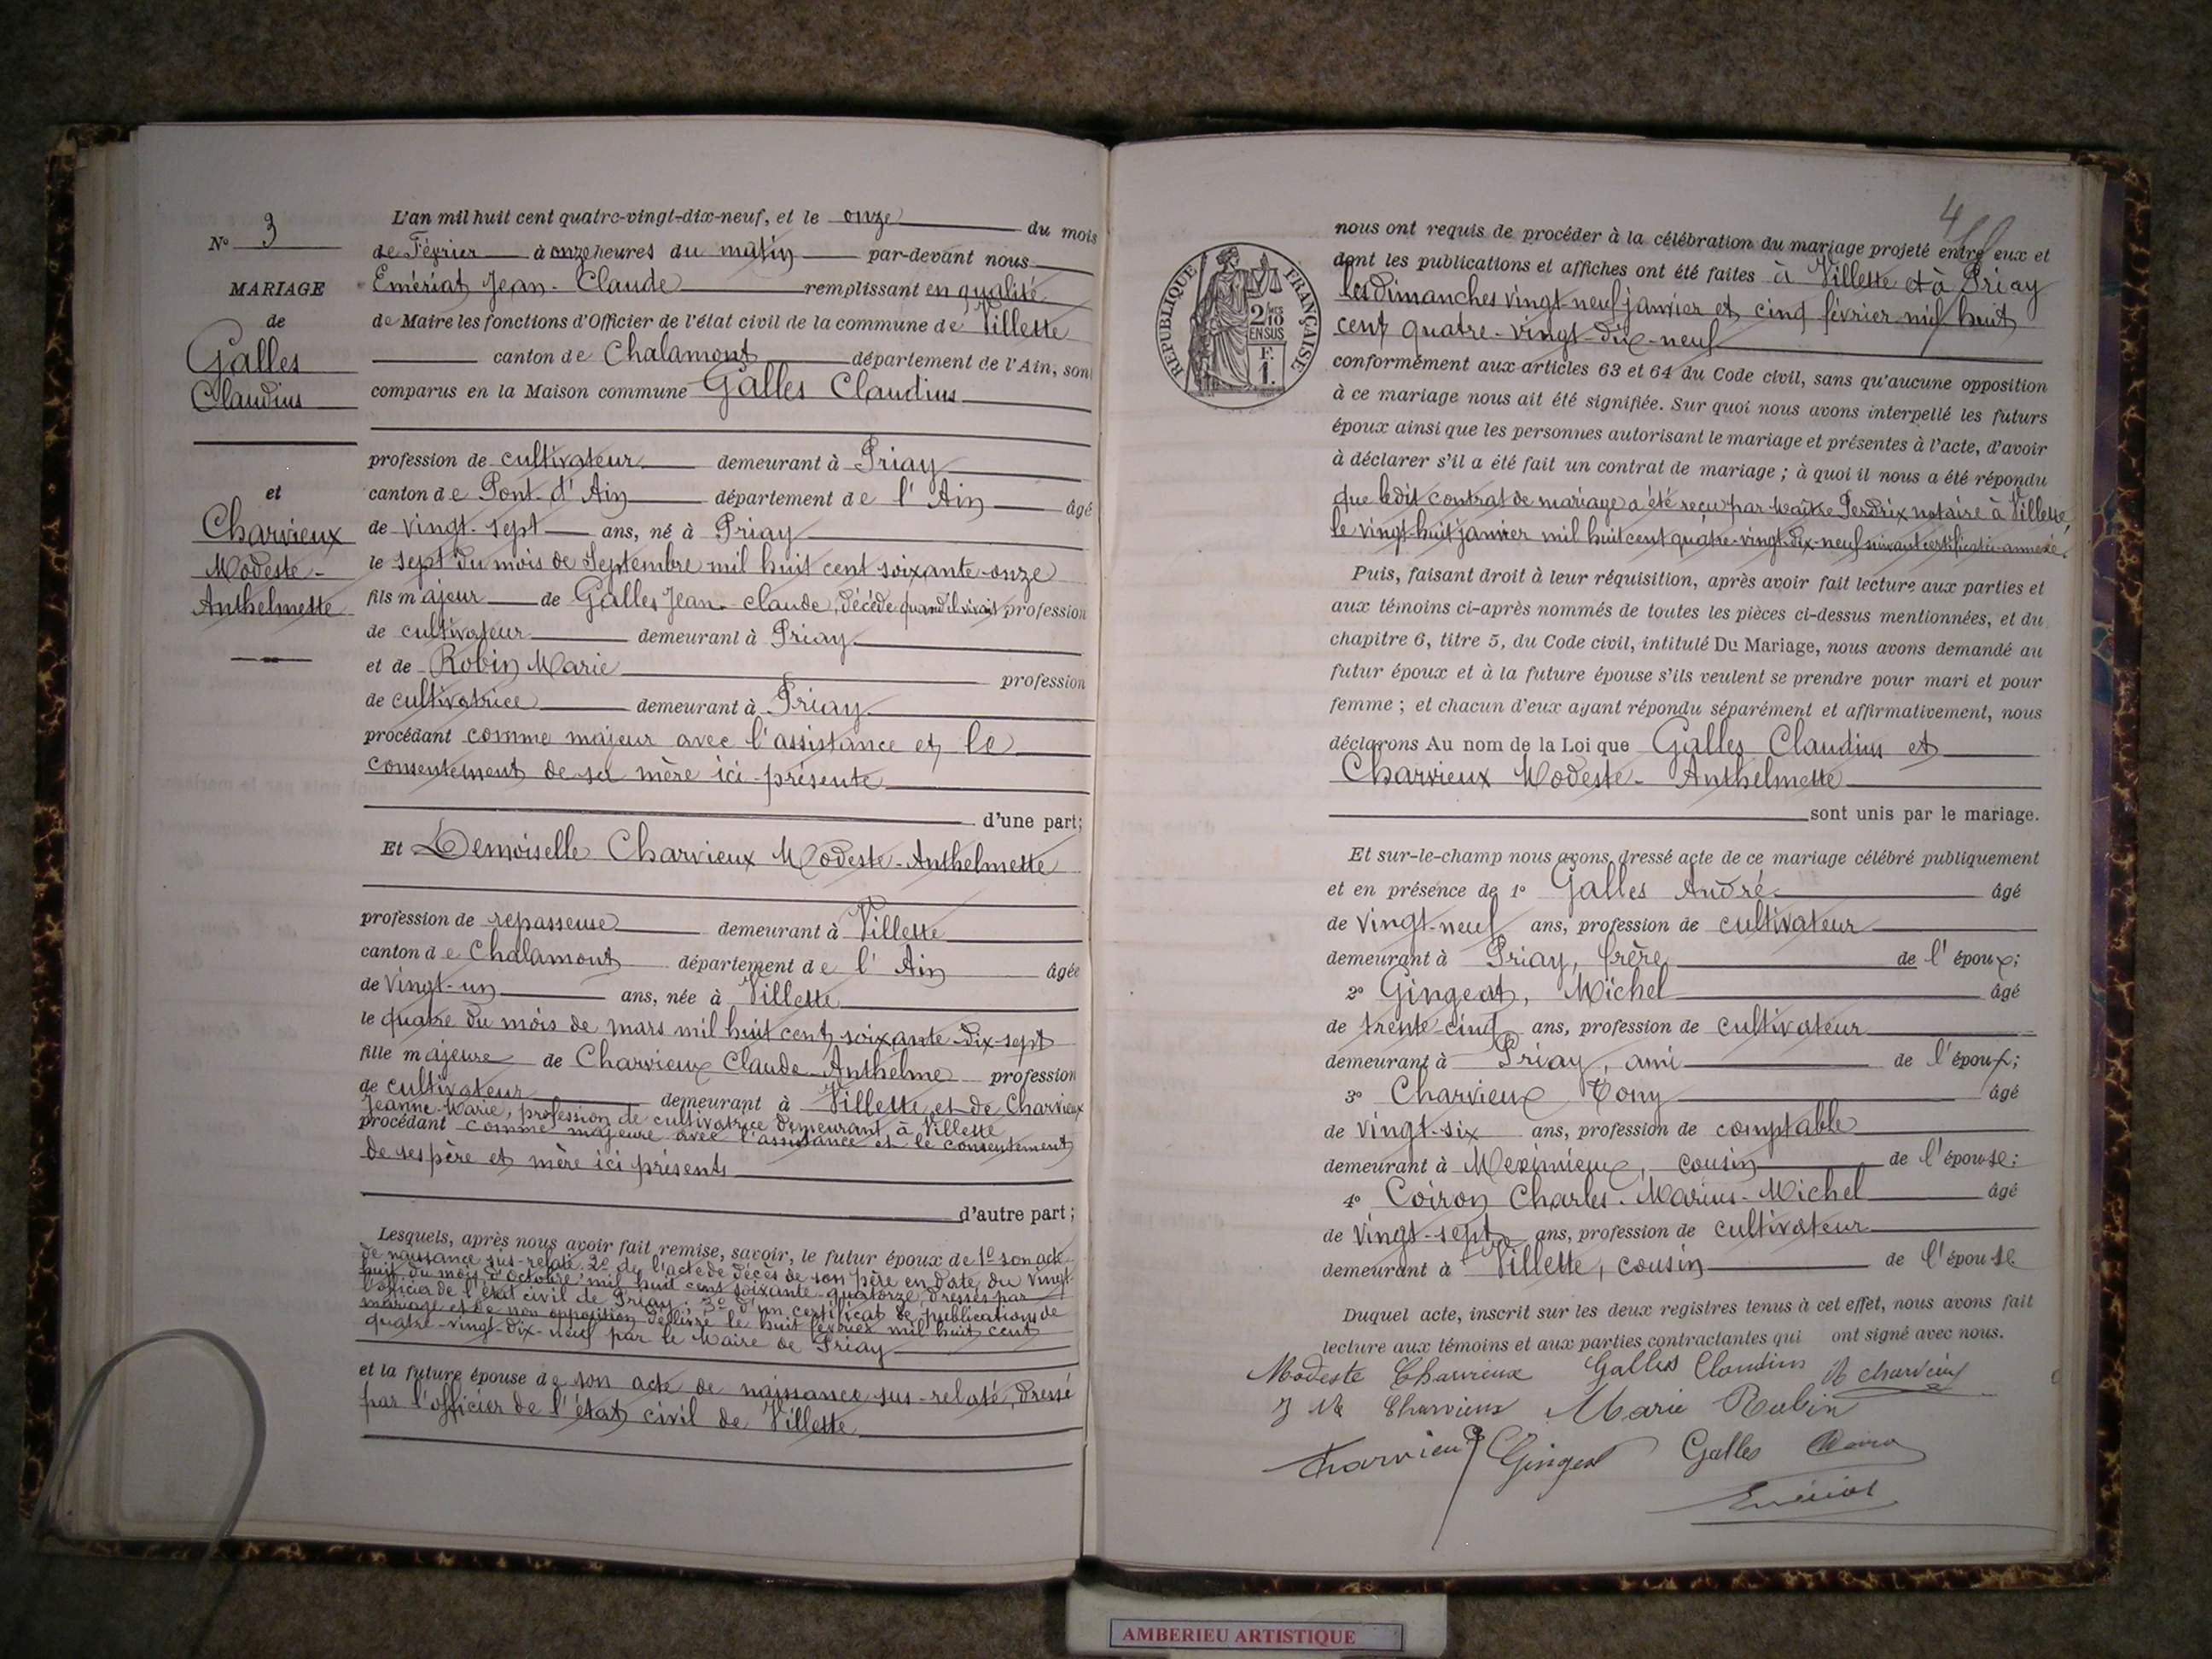 N° 3
MARIAGE
de
Galles
Claudius
et
Charvieux
Modeste-
Anthelmette
L'an mil huit cent quatre-vingt-dix-neuf, et le onze du mois
de Février à onze heures du matin par-devant nous
Emériat Jean-Claude remplissant en qualité
de Maire les fonctions d'Officier de l'état civil de la commune de Villette
canton de Chalamont département de l'Ain, sont
comparus en la Maison commune Galles Claudius
profession de cultivateur demeurant à Priay
canton de Pont-d'Ain département de l'Ain âgé
de vingt-sept ans, né à Priay
le sept du mois de Septembre mil huit cent soixante-onze
fils majeur de Galles Jean-Claude, décédé quand il vivait profession
de cultivateur demeurant à Priay
et de Robin Marie profession
de cultivatrice demeurant à Priay
procédant comme majeur avec l'assistance et le
consentement de sa mère ici présente
d'une part;
Et Demoiselle Charvieux Modeste-Anthelmette
profession de repasseuse demeurant à Villette
canton de Chalamont département de l'Ain âgée
de vingt-un ans, née à Villette
le quatre du mois de mars mil huit cent soixante-dix-sept
fille majeure de Charvieux Claude-Anthelme profession
de cultivateur demeurant à Villette et de Charvieux
Jeanne-Marie, profession de cultivatrice demeurant à Villette
procédant comme majeure avec l'assistance et le consentement
de ses père et mère ici présents
d'autre part;
Lesquels, après nous avoir fait remise, savoir, le futur époux de 1° son acte
de naissance sus-relaté 2° de l'acte de décès de son père en date du vingt
huit du mois d'octobre mil huit cent soixante-quatorze, dressés par
l'officier de l'état civil de Priay; 3° d'un certificat de publications de
mariage et de non opposition délivré le huit février mil huit cent
quatre-vingt-dix-neuf par le Maire de Priay
et la future épouse de son acte de naissance sus-relaté, dressé
par l'officier de l'état civil de Villette
4
RÉPUBLIQUE FRANÇAISE
2/10
EN SUS
F.
1.
nous ont requis de procéder à la célébration du mariage projeté entre eux et
dont les publications et affiches ont été faites à Villette et à Priay
les dimanches vingt neuf janvier et cinq février mil huit
cent quatre-vingt-dix-neuf
conformément aux articles 63 et 64 du Code civil, sans qu'aucune opposition
à ce mariage nous ait été signifiée. Sur quoi nous avons interpellé les futurs
époux ainsi que les personnes autorisant le mariage et présentes à l'acte, d'avoir
à déclarer s'il a été fait un contrat de mariage; à quoi il nous a été répondu
que ledit contrat de mariage a été reçu par Maître Perdrix notaire à Villette,
le vingt-huit janvier mil huit cent quatre-vingt-dix-neuf suivant certificat annexé.
Puis, faisant droit à leur réquisition, après avoir fait lecture aux parties et
aux témoins ci-après nommés de toutes les pièces ci-dessus mentionnées, et du
chapitre 6, titre 5, du Code civil, intitulé Du Mariage, nous avons demandé au
futur époux et à la future épouse s'ils veulent se prendre pour mari et pour
femme; et chacun d'eux ayant répondu séparément et affirmativement, nous
déclarons Au nom de la Loi que Galles Claudius et
Charvieux Modeste-Anthelmette
sont unis par le mariage.
Et sur-le-champ nous avons dressé acte de ce mariage célébré publiquement
et en présence de 1° Galles André âgé
de vingt-neuf ans, profession de cultivateur
demeurant à Priay, frère de l'époux;
2° Gingeat, Michel âgé
de trente-cinq ans, profession de cultivateur
demeurant à Priay, ami de l'époux;
3° Charvieux Tony âgé
de vingt-six ans, profession de comptable
demeurant à Meximieux, cousin de l'épouse:
4° Coiron Charles-Marius-Michel âgé
de vingt-sept ans, profession de cultivateur
demeurant à Villette, cousin de l'épouse
Duquel acte, inscrit sur les deux registres tenus à cet effet, nous avons fait
lecture aux témoins et aux parties contractantes qui ont signé avec nous.
Modeste Charvieux Galles Claudius charvieux
J M Charvieux Marie Robin
Charvieux Gingeat Galles
Emériat
AMBERIEU ARTISTIQUE